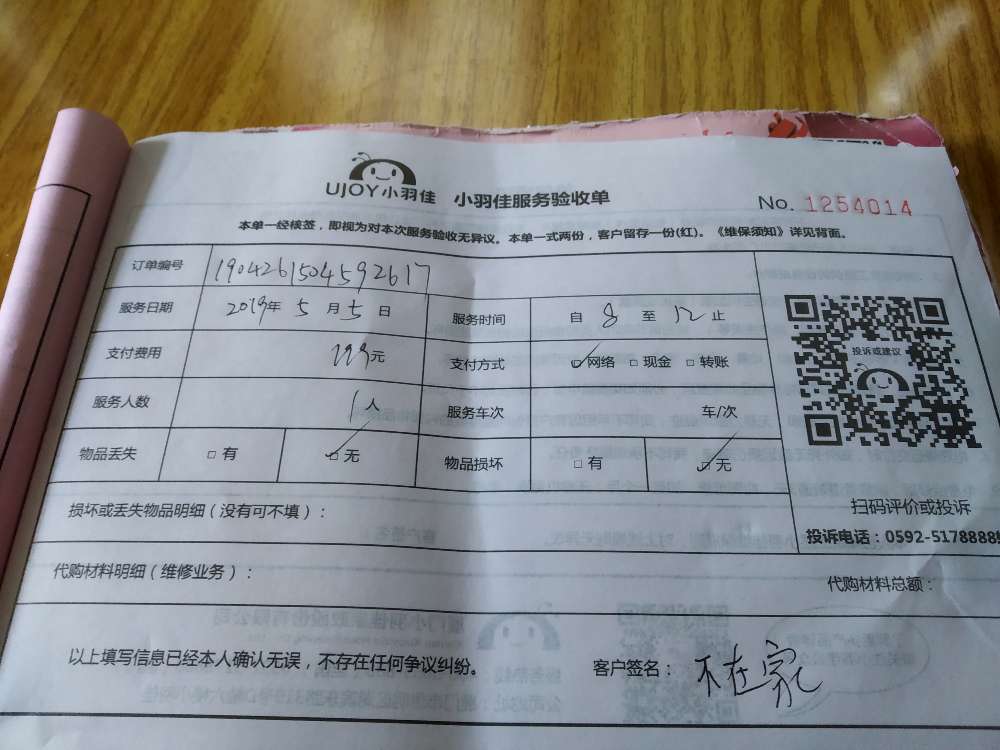 UJOY小羽佳 小羽佳服务验收单
No. 1254014
本单一经核签，即视为对本次服务验收无异议。本单一式两份，客户留存一份(红)。《维保须知》详见背面。
订单编号 1904261504592617
服务日期 2019年 5 月 5 日 服务时间 自 8 至 12 止
支付费用 199元 支付方式 ☑网络 □现金 □转账
服务人数 1人 服务车次 车/次
物品丢失 □有 ☑无 物品损坏 □有 ☑无
投诉或建议
扫码评价或投诉
投诉电话：0592-5178888
损坏或丢失物品明细（没有可不填）：
代购材料明细（维修业务）：
代购材料总额：
以上填写信息已经本人确认无误，不存在任何争议纠纷。 客户签名：不在家